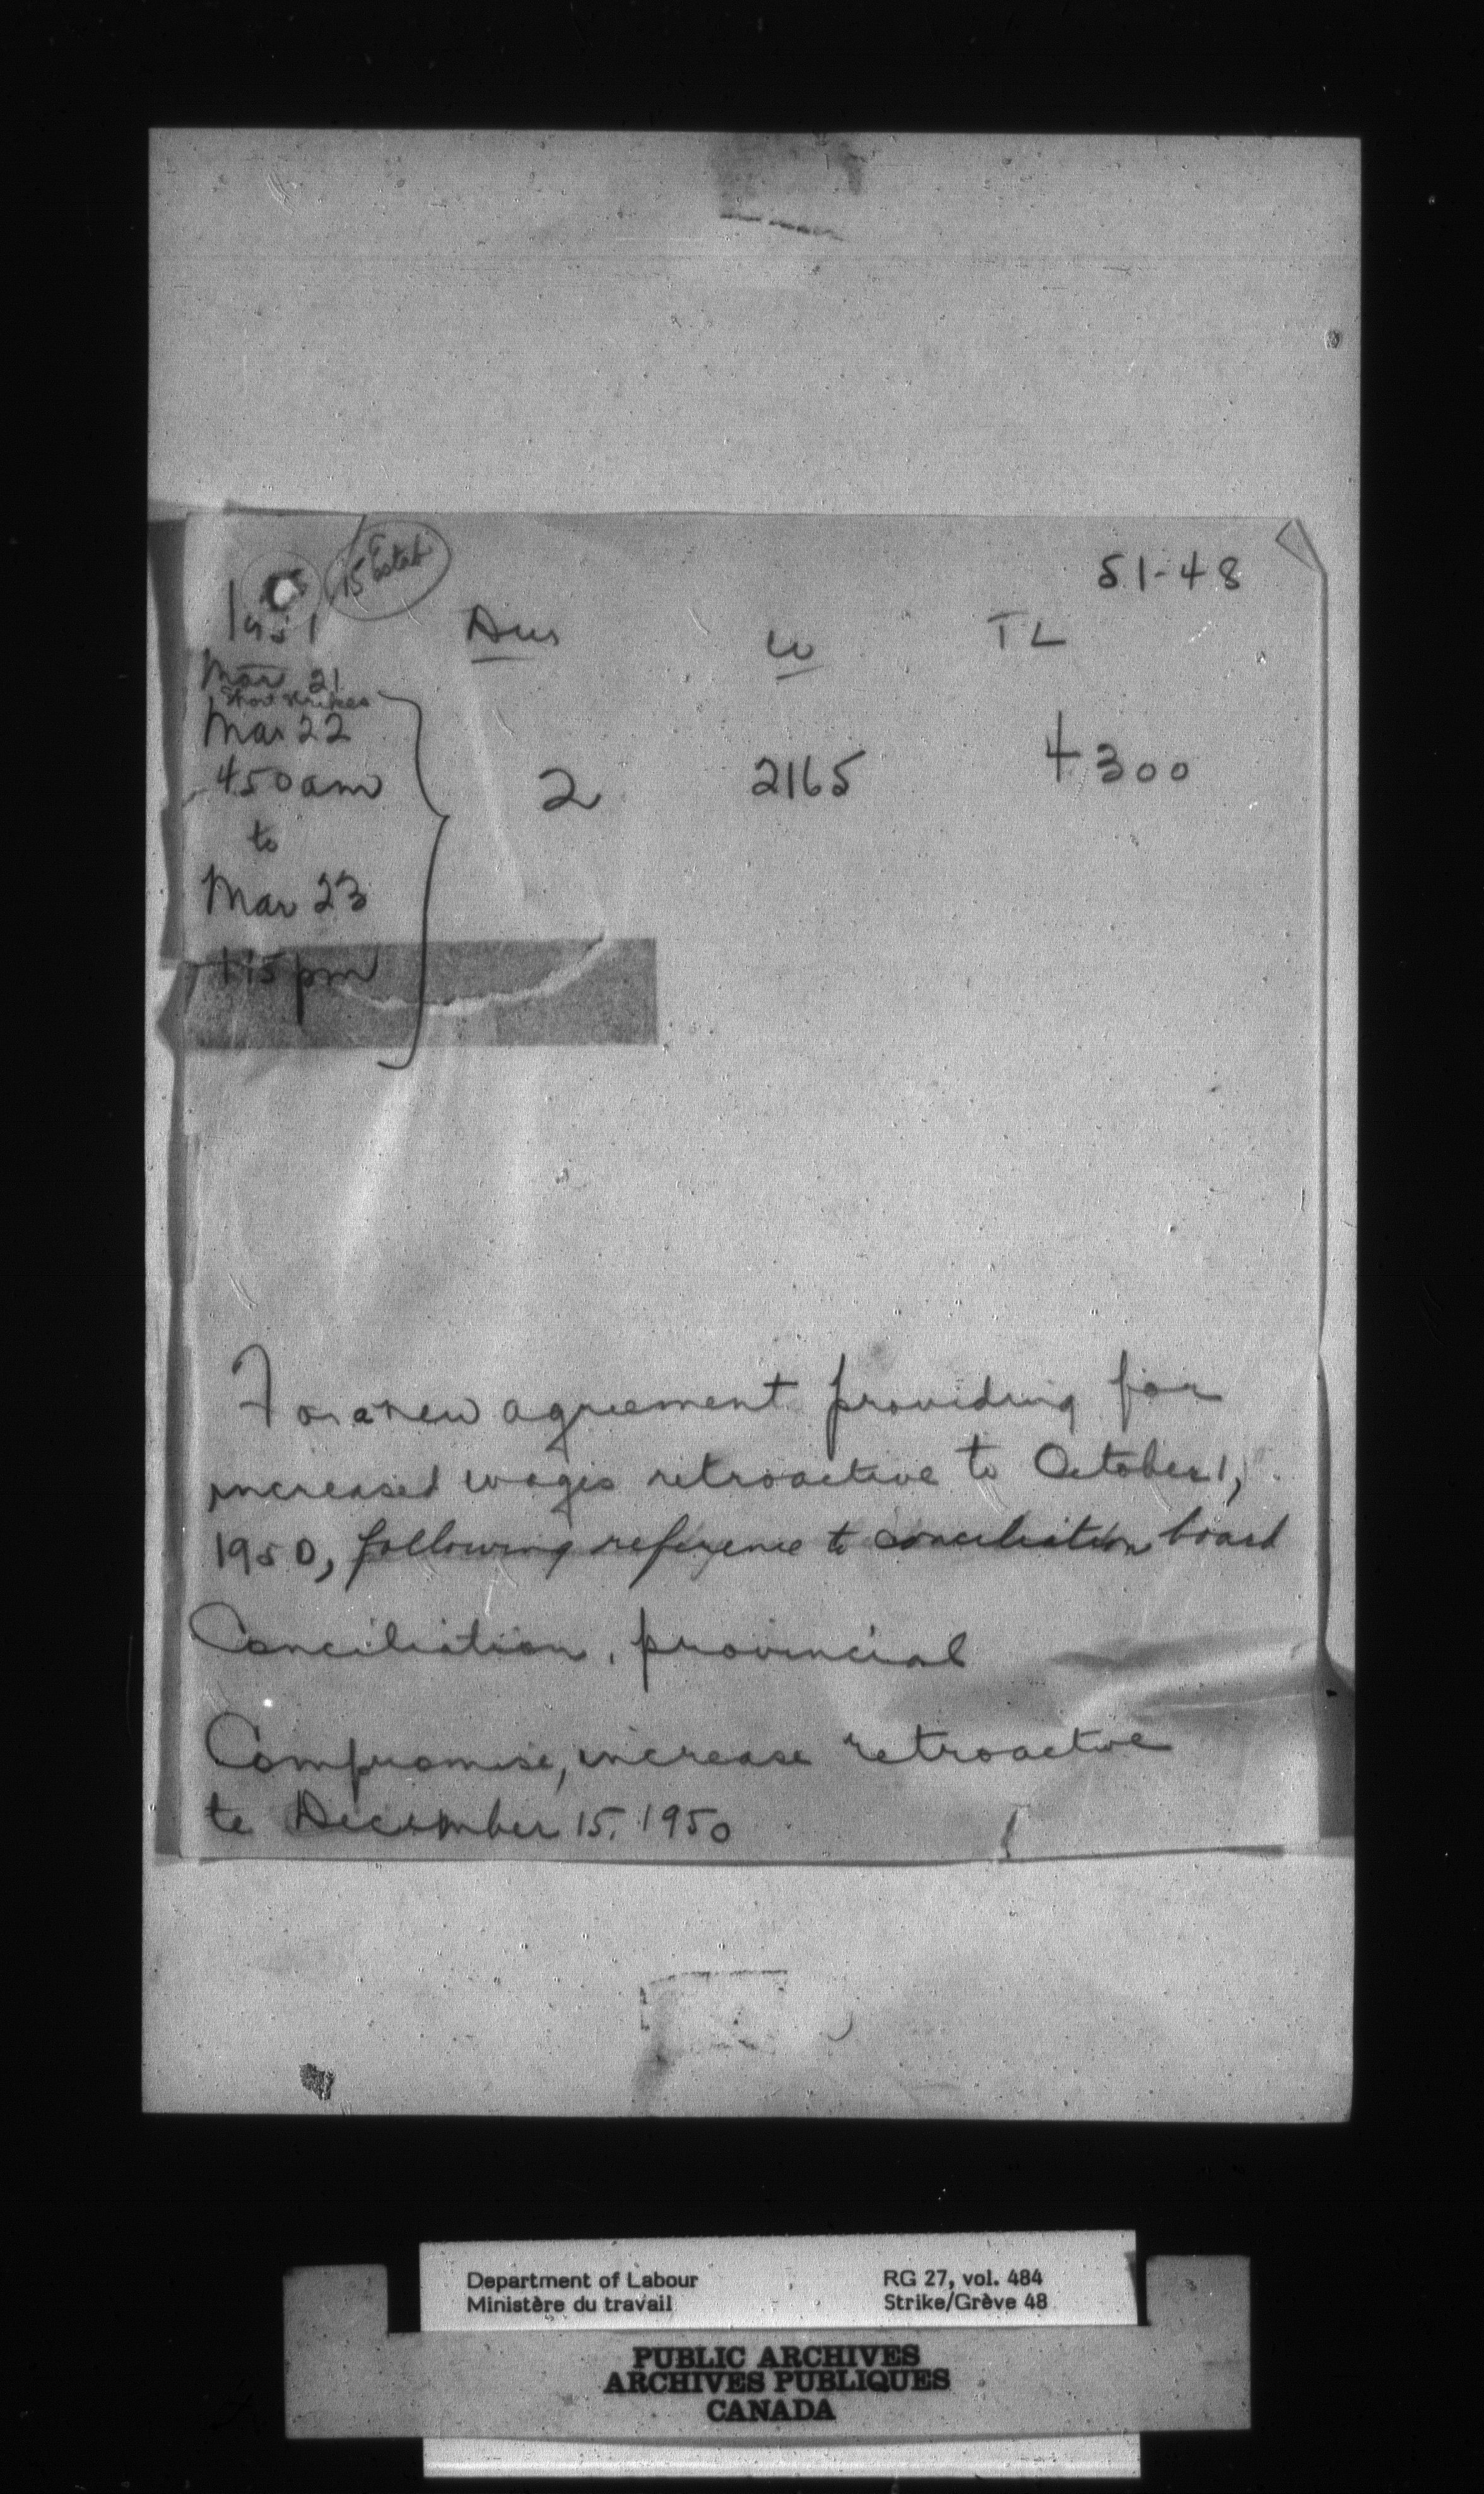 15 Estab
51-48
1951
Dur W TL
Mar 21
Short strikes
Mar 22
4 50 am
to
Mar 23
1 15 pm
2 2165 4300
For a new agreement providing for
increased wages retroactive to October 1,
1950, following reference to conciliation board
Conciliation, provincial
Compromise, increase retroactive
to December 15, 1950
Department of Labour
Ministère du travail
RG 27, vol. 484
Strike/Grève 48
PUBLIC ARCHIVES
ARCHIVES PUBLIQUES
CANADA